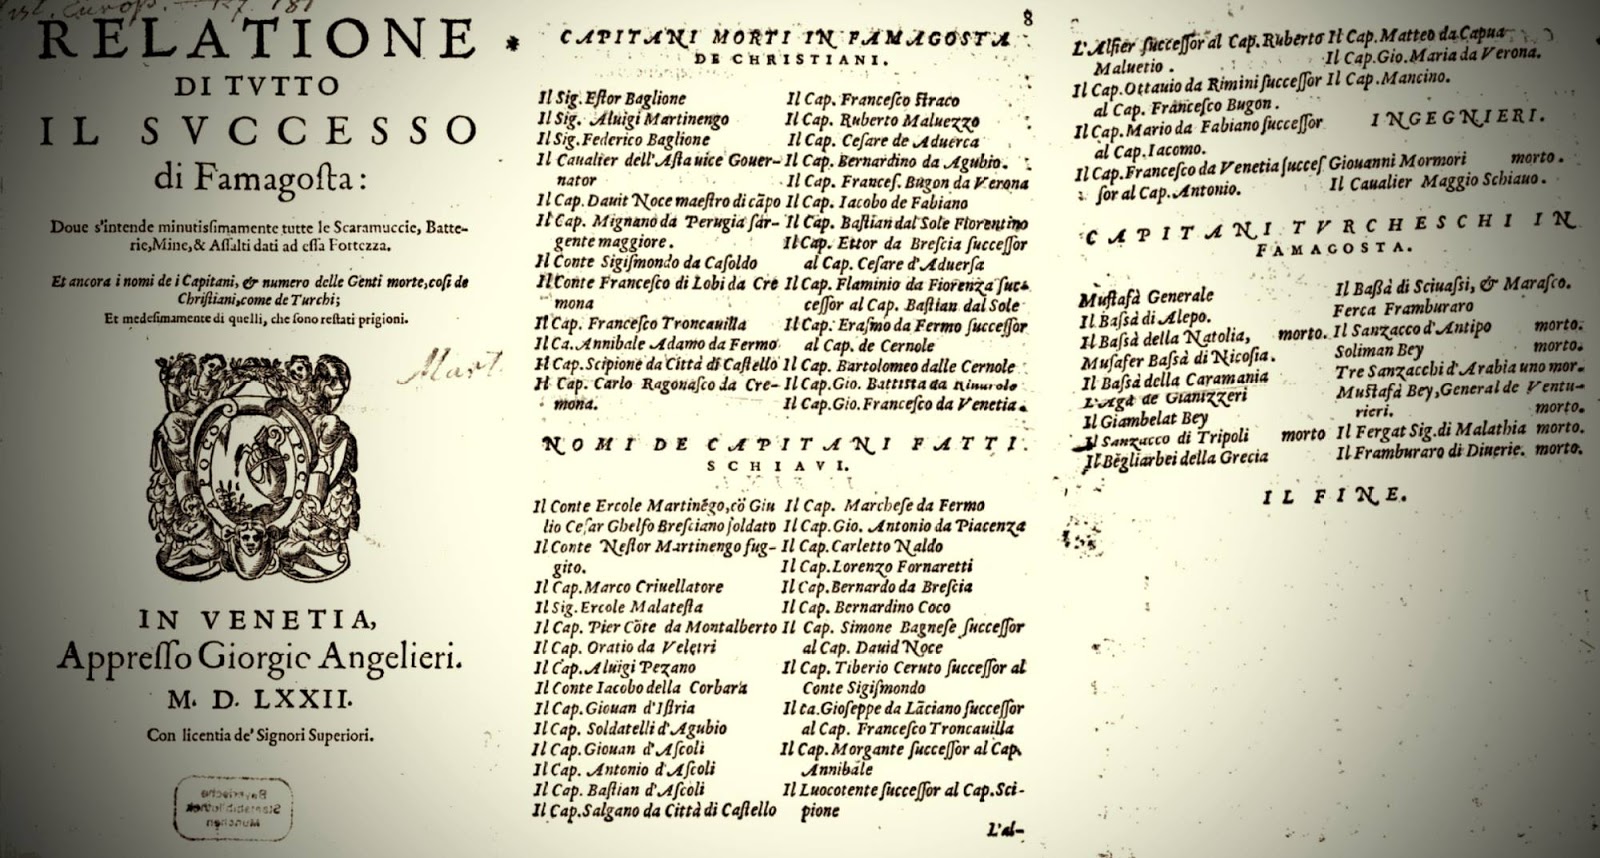 RELATIONE
DI TVTTO
IL SVCCESSO
di Famagoſta:
Doue s'intende minutiſsimamente tutte le Scaramuccie, Batte-
rie,Mine,& Aſſalti dati ad eſſa Fortezza.
Et ancora i nomi de i Capitani, & numero delle Genti morte,coſi de
Chriſtiani,come de Turchi;
Et medeſimamente di quelli, che ſono reſtati prigioni.
Mart.
IN VENETIA,
Appreſſo Giorgio Angelieri.
M. D. LXXII.
Con licentia de' Signori Superiori.
Bayerische
Staatsbibliothek
München
8
CAPITANI MORTI IN FAMAGOSTA
DE CHRISTIANI.
Il Sig. Eſtor Baglione
Il Sig. Aluigi Martinengo
Il Sig. Federico Baglione
Il Caualier dell'Aſta uice Gouer-
nator
Il Cap. Dauit Noce maeſtro di cāpo
Il Cap. Mignano da Perugia ſar-
gente maggiore.
Il Conte Sigiſmondo da Caſoldo
Il Conte Franceſco di Lobi da Cre
mona
Il Cap. Franceſco Troncauilla
Il Ca. Annibale Adamo da Fermo
Il Cap. Scipione da Città di Caſtello
Il Cap. Carlo Ragonaſco da Cre-
mona.
Il Cap. Franceſco ſtraco
Il Cap. Ruberto Maluezzo
Il Cap. Ceſare de Aduerca
Il Cap. Bernardino da Agubio.
Il Cap. Franceſ. Bugon da Verona
Il Cap. Iacobo de Fabiano
Il Cap. Baſtian dal Sole Florentino
Il Cap. Ettor da Breſcia ſucceſſor
al Cap. Ceſare d'Aduerſa
Il Cap. Flaminio da Fiorenza ſuc-
ceſſor al Cap. Baſtian dal Sole
Il Cap. Eraſmo da Fermo ſucceſſor
al Cap. de Cernole
Il Cap. Bartolomeo dalle Cernole
Il Cap. Gio. Battiſta da
Il Cap. Gio. Franceſco da Venetia.
NOMI DE CAPITANI FATTI
SCHIAVI.
Il Conte Ercole Martinēgo,cō Giu
lio Ceſar Ghelfo Breſciano ſoldato
Il Conte Neſtor Martinengo fug-
gito.
Il Cap. Marco Criuellatore
Il Sig. Ercole Malateſta
Il Cap. Pier Cōte da Montalberto
Il Cap. Oratio da Veletri
Il Cap. Aluigi Pezano
Il Conte Iacobo della Corbara
Il Cap. Giouan d'Iſtria
Il Cap. Soldatelli d'Agubio
Il Cap. Giouan d'Aſcoli
Il Cap. Antonio d'Aſcoli
Il Cap. Baſtian d'Aſcoli
Il Cap. Salgano da Città di Caſtello
Il Cap. Marcheſe da Fermo
Il Cap. Gio. Antonio da Piacenza
Il Cap. Carletto Naldo
Il Cap. Lorenzo Fornaretti
Il Cap. Bernardo da Breſcia
Il Cap. Bernardino Coco
Il Cap. Simone Bagneſe ſucceſſor
al Cap. Dauid Noce
Il Cap. Tiberio Ceruto ſucceſſor al
Conte Sigiſmondo
Il ca. Gioſeppe da Lāciano ſucceſſor
al Cap. Franceſco Troncauilla
Il Cap. Morgante ſucceſſor al Cap.
Annibale
Il Luocotente ſucceſſor al Cap. Sci-
pione
L'al-
L'Alfier ſucceſſor al Cap. Ruberto
Maluetio.
Il Cap. Ottauio da Rimini ſucceſſor
al Cap. Franceſco Bugon.
Il Cap. Mario da Fabiano ſucceſſor
al Cap. Iacomo.
Il Cap. Franceſco da Venetia ſucceſ
ſor al Cap. Antonio.
Il Cap. Matteo da Capua
Il Cap. Gio. Maria da Verona.
Il Cap. Mancino.
INGEGNIERI.
Giouanni Mormori morto.
Il Caualier Maggio Schiauo.
CAPITANI TVRCHESCHI IN
FAMAGOSTA.
Muſtafà Generale
Il Baſsà di Alepo.
Il Baſsà della Natolia, morto.
Muſafer Baſsà di Nicoſia.
Il Baſsà della Caramania
L'Agà de Gianizzeri
Il Giambelat Bey
Il Sanzacco di Tripoli morto
Il Bègliarbei della Grecia
Il Baſsà di Sciuaſsi, & Maraſco.
Ferca Framburaro
Il Sanzacco d'Antipo morto.
Soliman Bey morto.
Tre Sanzacchi d'Arabia uno mor.
Muſtafà Bey, General de Ventu-
rieri. morto.
Il Fergat Sig. di Malathia morto.
Il Framburaro di Diuerie. morto.
IL FINE.